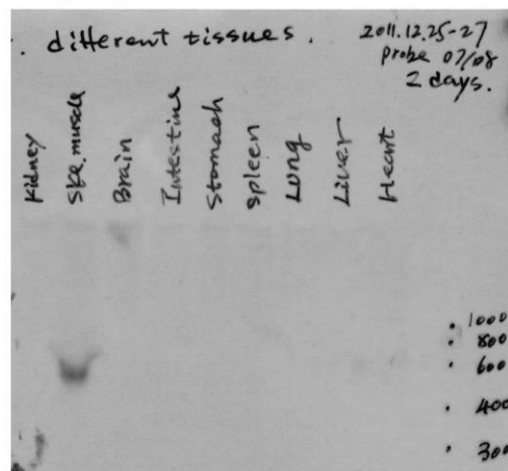 . different tissues.
2011.12.25-27
probe 07/08
2 days.
Kidney
Ske. muscle
Brain
Intestine
Stomach
spleen
Lung
Liver
Heart
1000
800
600
400
300